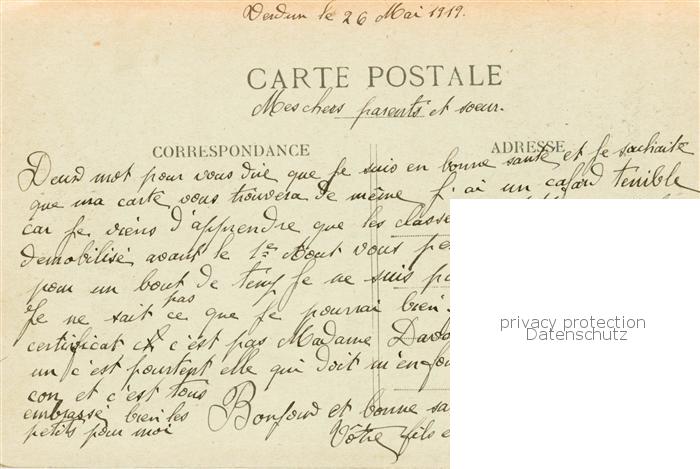 Verdun le 26 Mai 1919.
CARTE POSTALE
Mes chers parents et sœur.
CORRESPONDANCE
ADRESSE
Deux mot pour vous dire que Je suis en bonne santé et Je souhaite
que ma carte vous trouvera de même J'ai un cafard terrible
car Je viens d'apprendre que les classe
demobilisé avant le 1er Aout vous
pour un bout de temp Je ne suis
Je ne sait pas ce que Je pourrai bien
certificat c'est pas Madame
un c'est pourtent elle qui doit
con et c'est tous
embrassé bien les
petits pour moi
Bonjour et bonne
Vôtre fils
privacy protection
Datenschutz